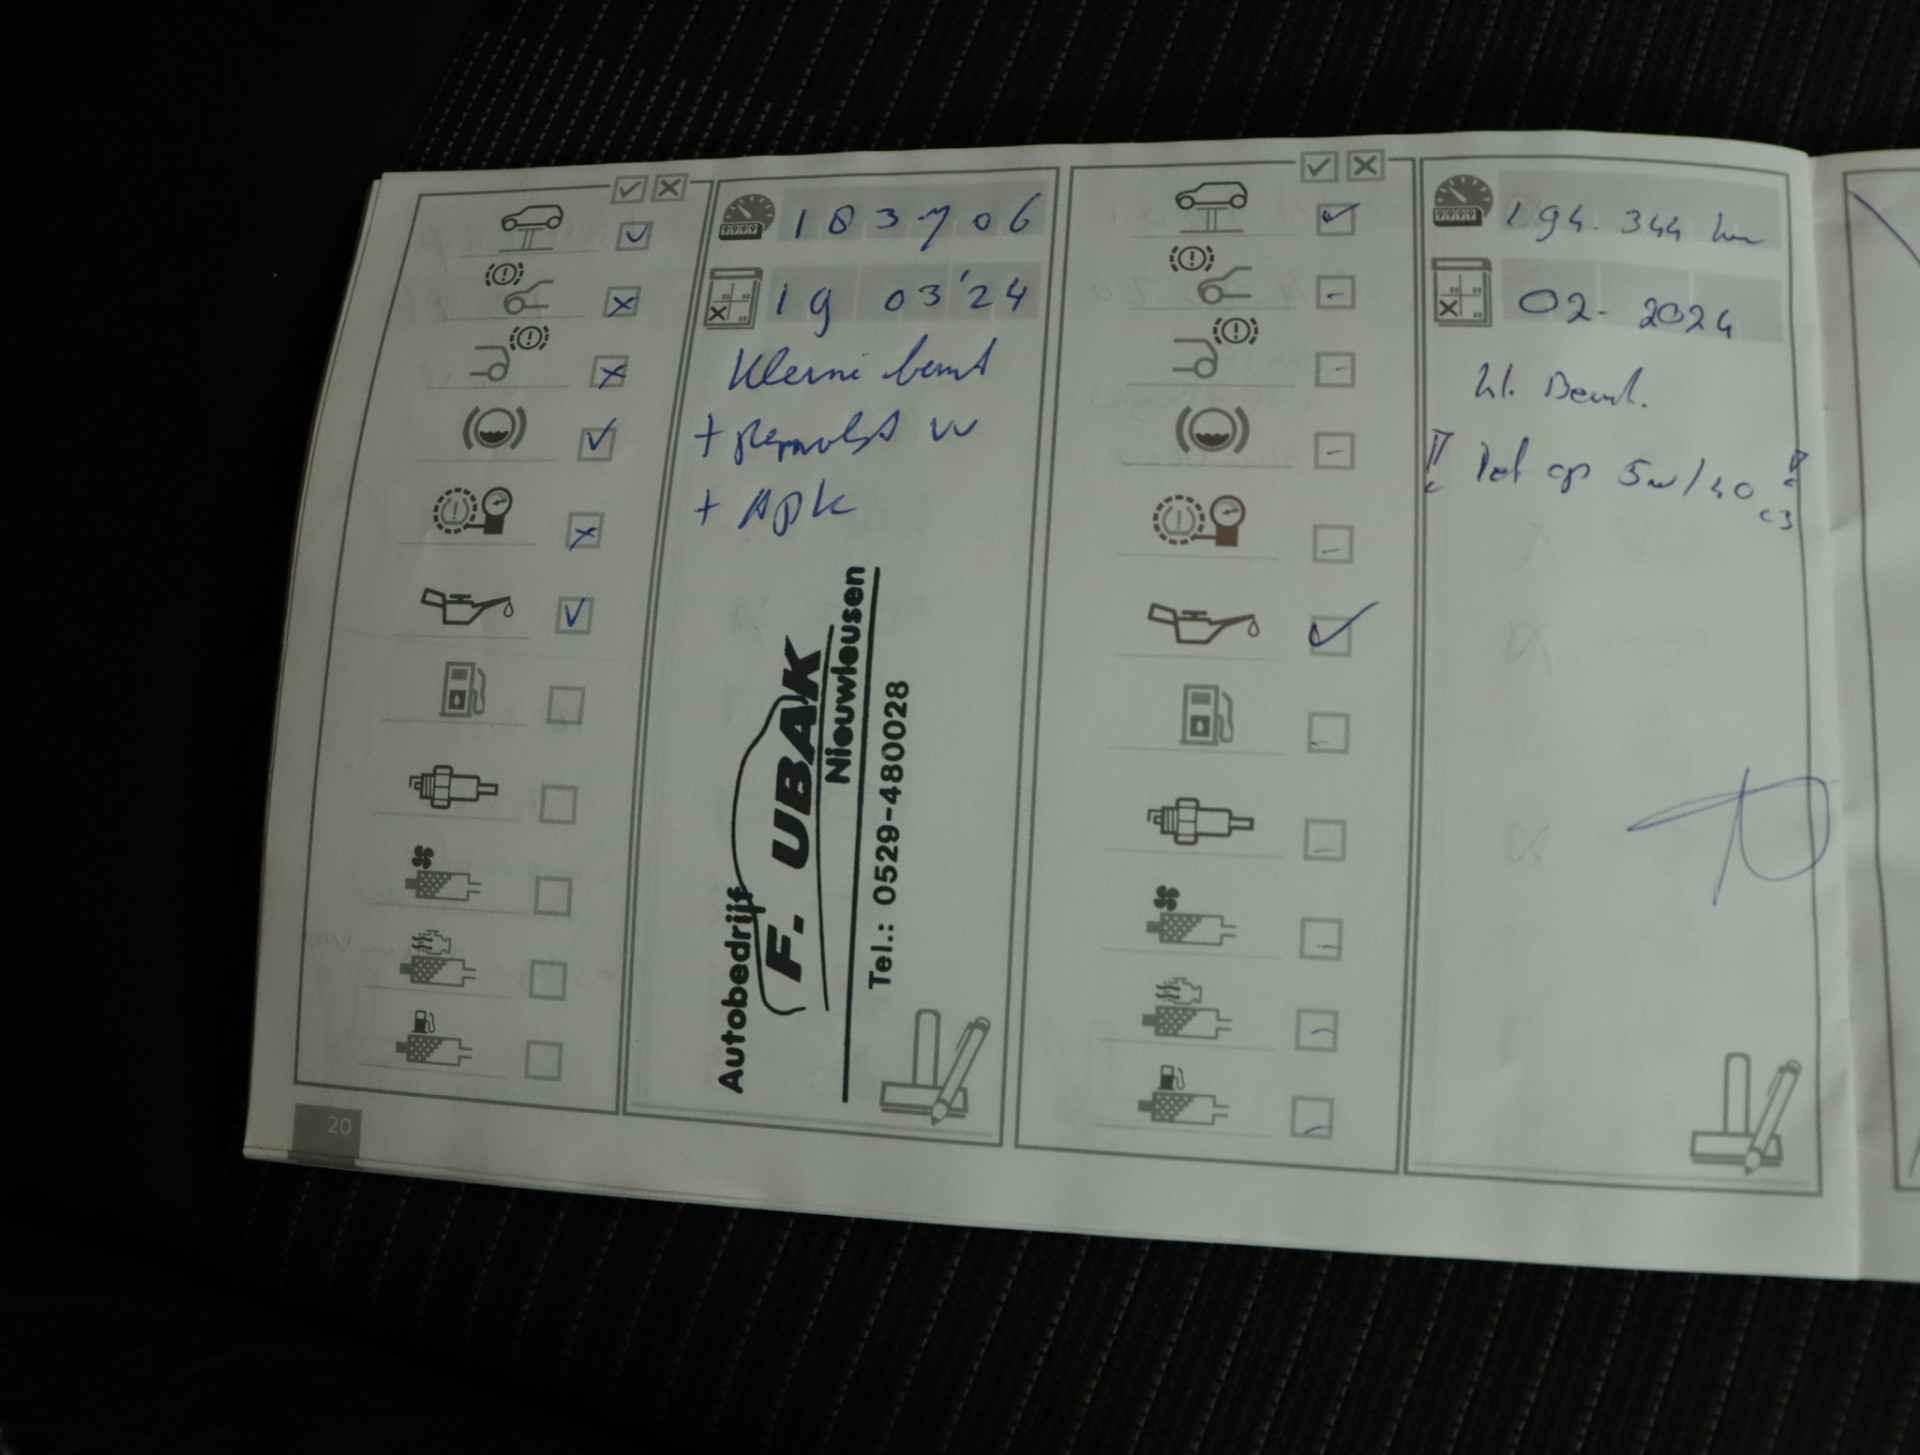 183706
19 03'24
Kleine beurt
+ Remvlst vv
+ Apk
Autobedrijf
F. UBAK
Nieuwleusen
Tel.: 0529-480028
20
194.344 km
02-2024
Kl. Beurt.
!! Let op 5w/40 !!
C3